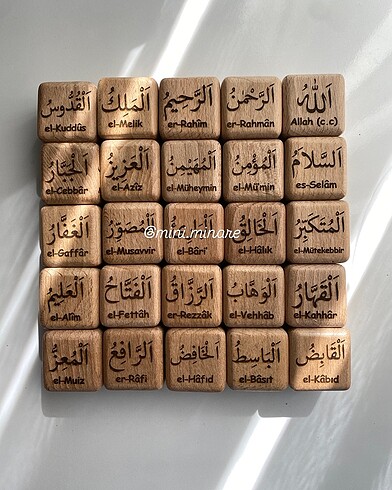 اَللّٰهُ
Allah (c.c)
اَلرَّحْمٰنُ
er-Rahmân
اَلرَّحِيمُ
er-Rahîm
اَلْمَلِكُ
el-Melik
اَلْقُدُّوسُ
el-Kuddûs
اَلسَّلَامُ
es-Selâm
اَلْمُؤْمِنُ
el-Mü'min
اَلْمُهَيْمِنُ
el-Müheymin
اَلْعَزِيزُ
el-Azîz
اَلْجَبَّارُ
el-Cebbâr
اَلْمُتَكَبِّرُ
el-Mütekebbir
اَلْخَالِقُ
el-Hâlık
اَلْبَارِئُ
el-Bâri'
اَلْمُصَوِّرُ
el-Musavvir
اَلْغَفَّارُ
el-Gaffâr
@mini.minare
اَلْقَهَّارُ
el-Kahhâr
اَلْوَهَّابُ
el-Vehhâb
اَلرَّزَّاقُ
er-Rezzâk
اَلْفَتَّاحُ
el-Fettâh
اَلْعَلِيمُ
el-Alîm
اَلْقَابِضُ
el-Kâbıd
اَلْبَاسِطُ
el-Bâsıt
اَلْخَافِضُ
el-Hâfıd
اَلرَّافِعُ
er-Râfi
اَلْمُعِزُّ
el-Muiz